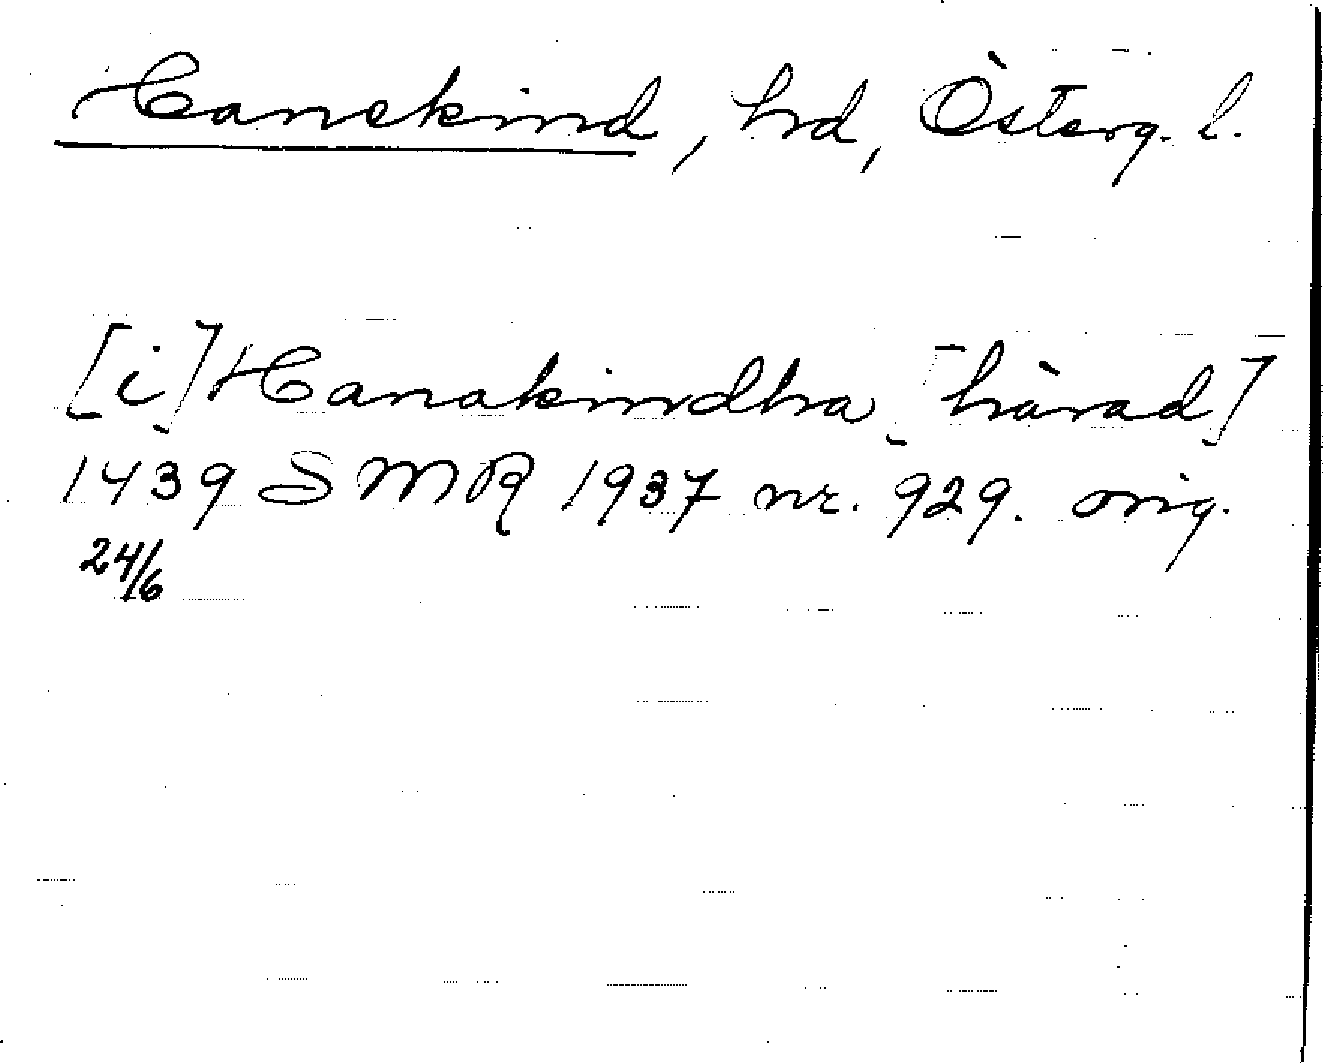 Hanekind, hrd, Österg. l.
[i] Hanakindhra [härad]
1439 SMR 1937 nr. 929. orig.
24/6